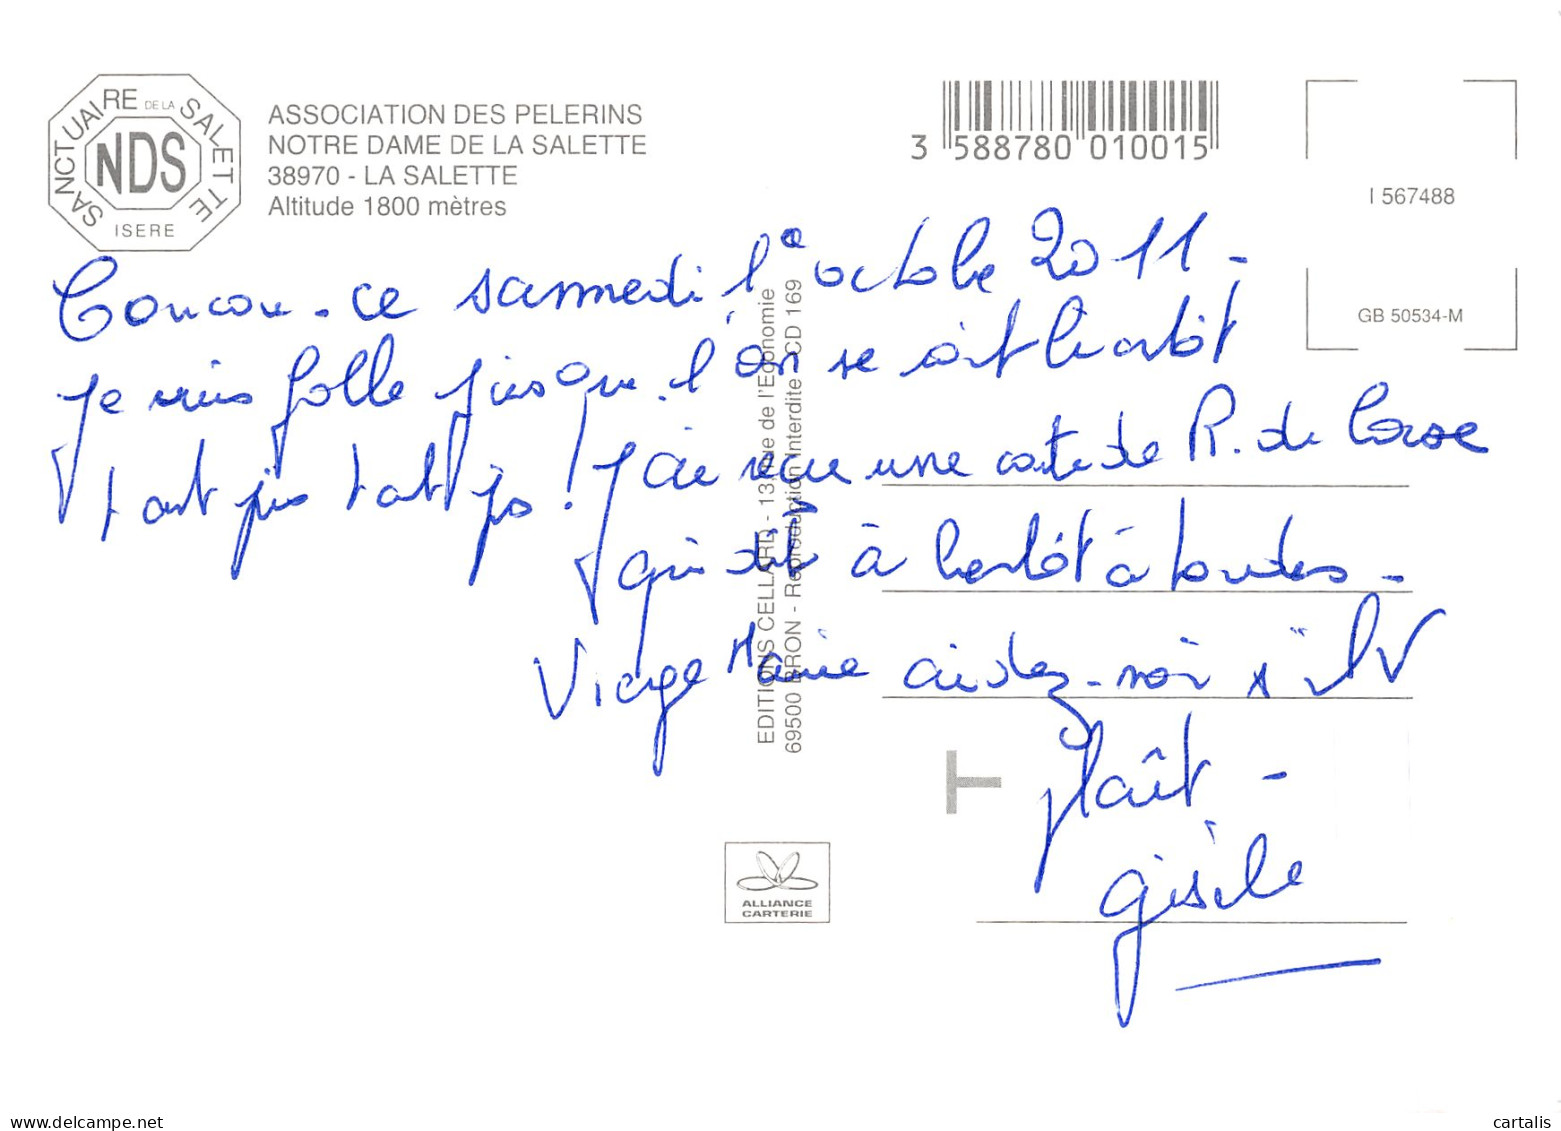 SANCTUAIRE DE LA SALETTE
NDS
ISERE
ASSOCIATION DES PELERINS
NOTRE DAME DE LA SALETTE
38970 - LA SALETTE
Altitude 1800 mètres
3 588780 010015
I 567488
GB 50534-M
Coucou - ce samedi 1e octobre 2011 -
je suis folle puisque l'on se voit bientôt
tant pis tant pis ! J'ai reçu une carte de R. de Corse
qui dit à bientôt à toutes -
Vierge Marie aidez-moi s'il V
plaît -
Gisèle
EDITIONS CELLARD - 13, rue de l'Economie
69500 BRON - Reproduction Interdite - CD 169
ALLIANCE
CARTERIE
delcampe.net
cartalis